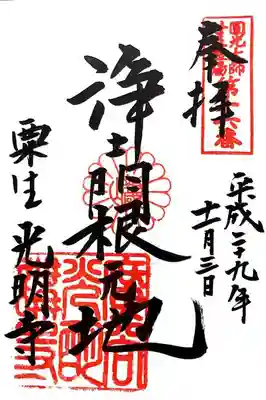 奉拝
圓光大師
第十六番
平成二十九年
十一月三日
浄土門根元地
粟生 光明寺